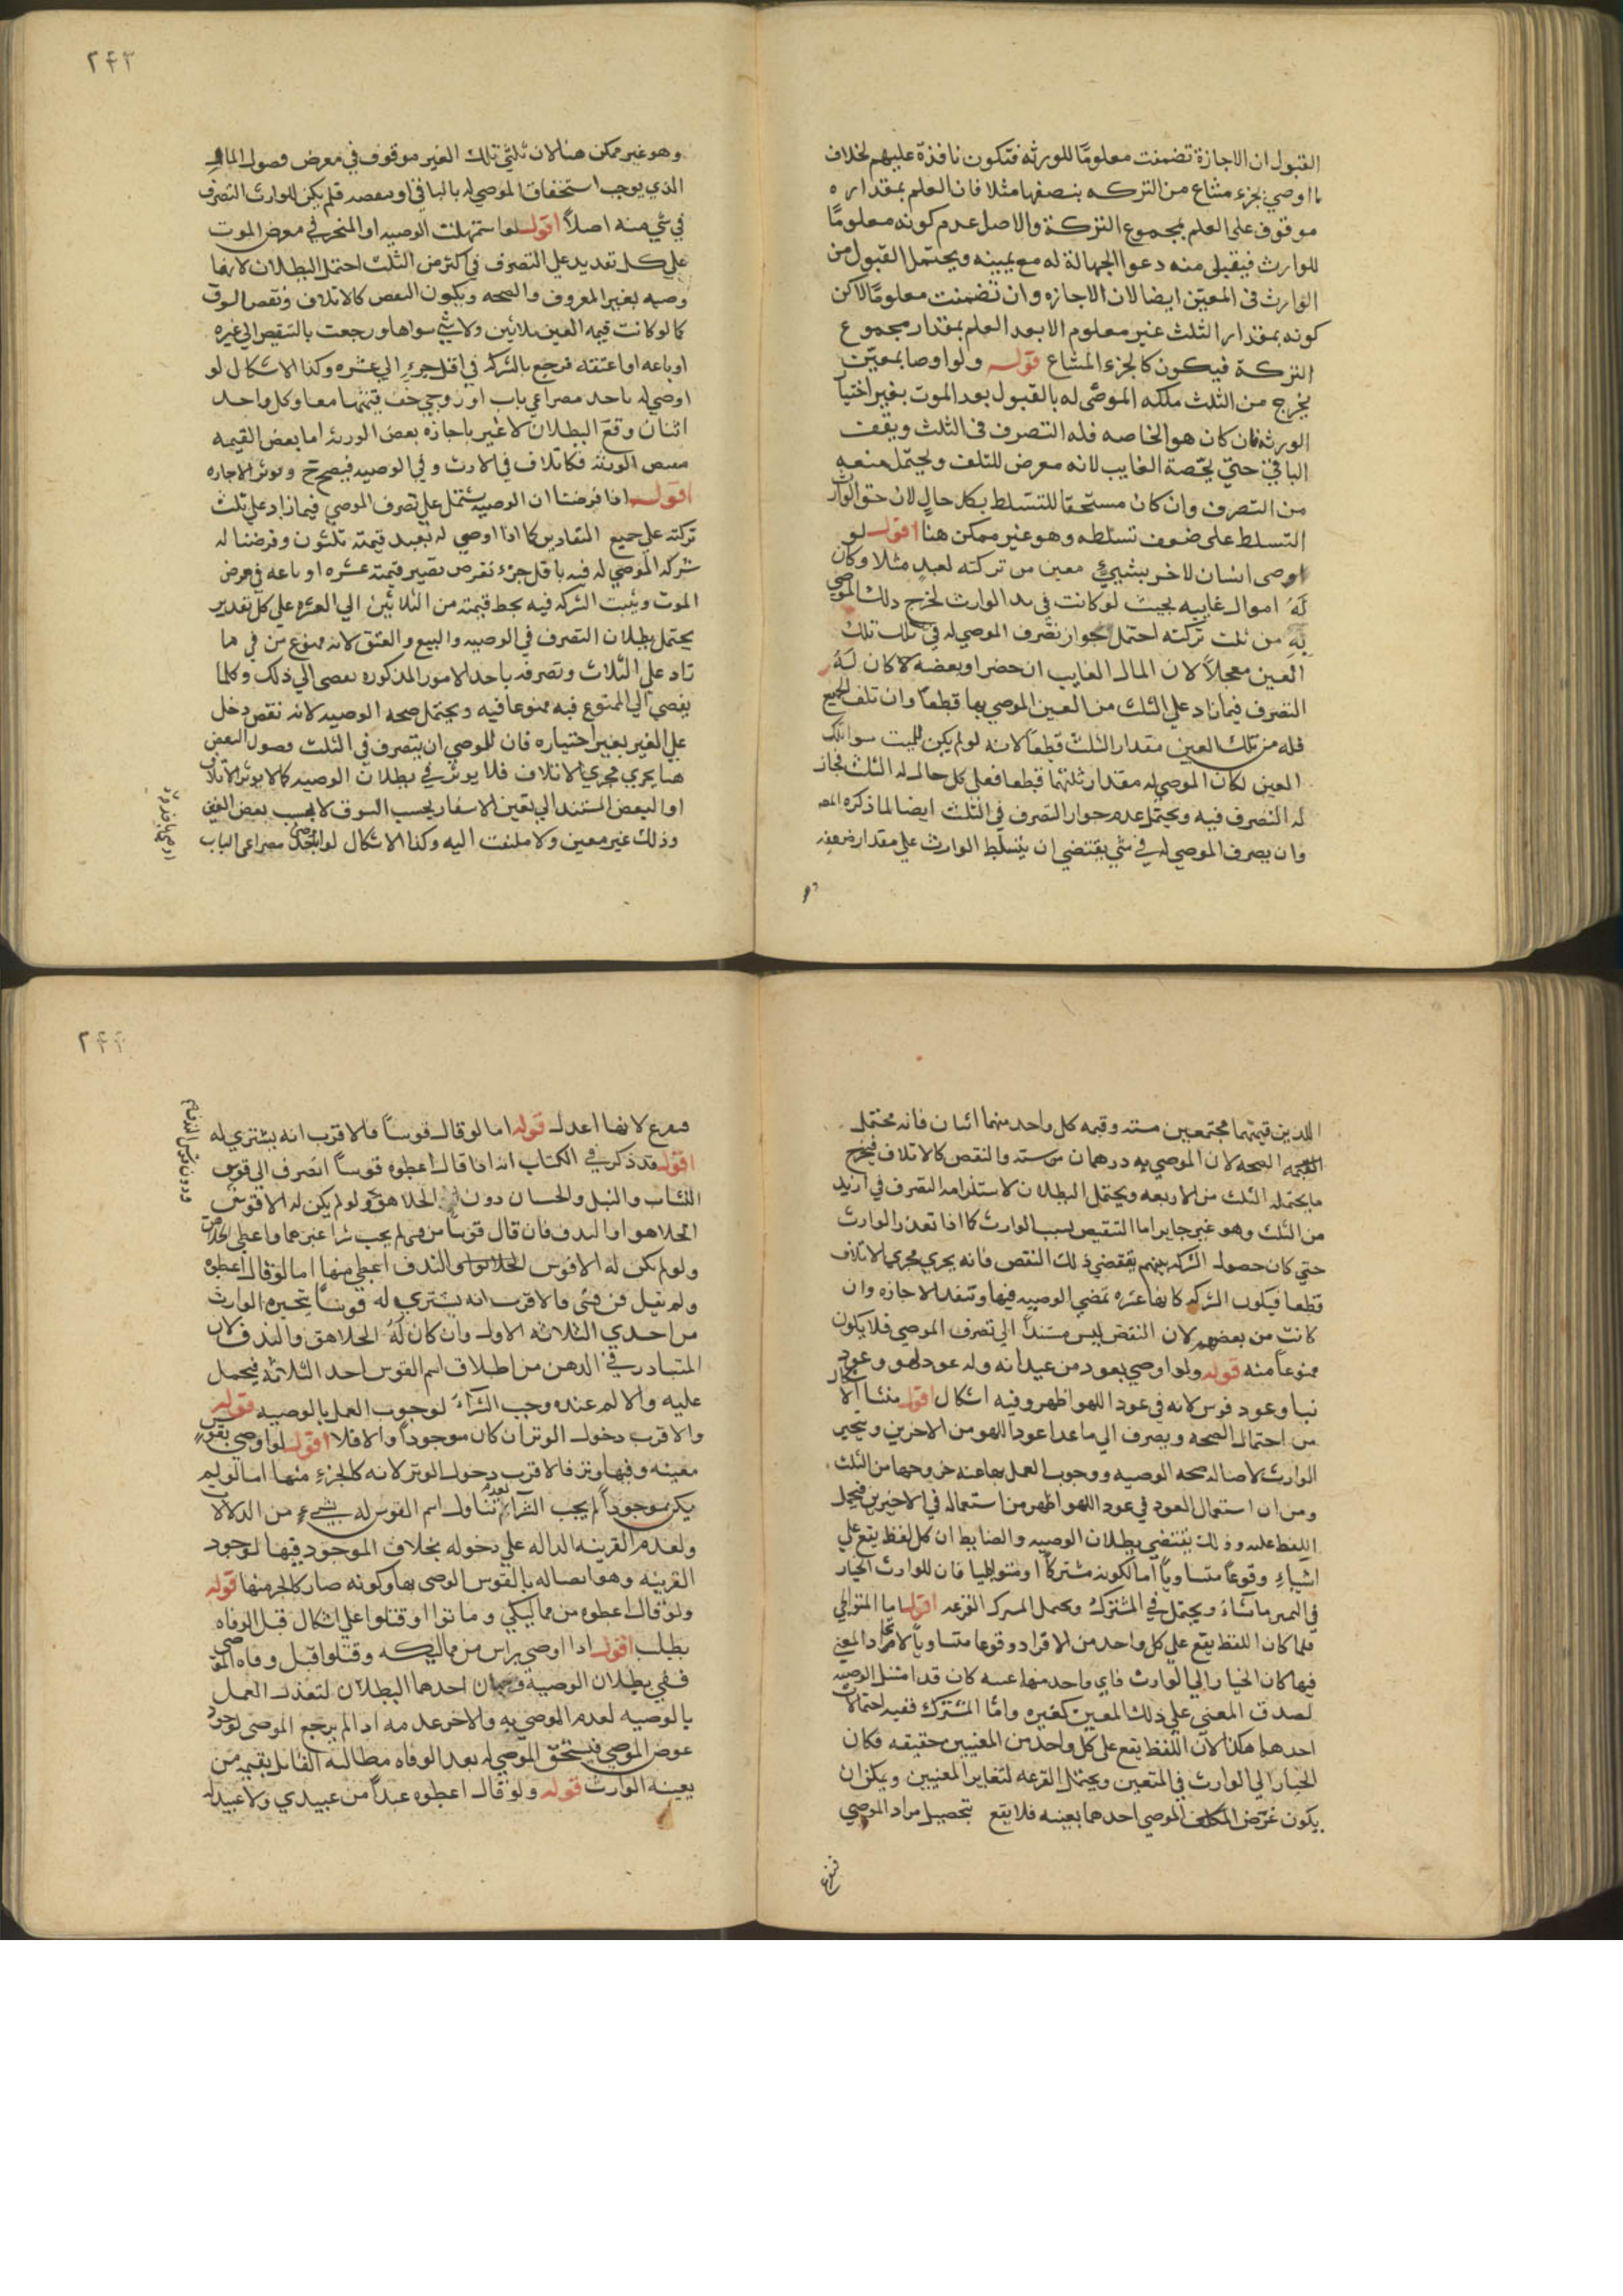 القبول ان الاجازة تضمنت معلومًا للورثه فتكون نافذة عليهم بخلاف
ما اوصي بجزء مشاع من التركه بنصفها مثلا فان العلم بمقداره
موقوف على العلم بمجموع التركة والاصل عدم كونه معلومًا
للوارث فيقبل منه دعوا الجهالة له مع يمينه ويحتمل القبول من
الوارث فى المعيّن ايضا لان الاجازه وان تضمنت معلومًا لاكن
كونه بمقدار الثلث غير معلوم الا بعد العلم بمقدار مجموع
التركة فيكون كالجزء المشاع قوله ولو اوصا بمعيّن
يخرج من الثلث ملكه الموصى له بالقبول بعد الموت بغير اختيار
الورثه فان كان هو الخاصه فله التصرف فى الثلث ويقف
الباقي حتي يحصة الغايب لانه معرض للتلف ويحتمل منعه
من التصرف وان كان مستحقا للتسلط بكل حال لان حق الوارث
التسلط على ضعف تسلطه وهو غير ممكن هنا اقول لو
اوصى انسان لاخر بشيئ معين من تركته لعبد مثلا وكان
له اموال غايبه بحيث لو كانت في يد الوارث لخرج ذلك الموصي
به من ثلث تركته احتمل جواز تصرف الموصي له في ثلث تلك
العين معجلاً لان المال الغايب ان حضر او بعضه لا كان له
التصرف فيما زاد علي الثلث من العين الموصي بها قطعاً وان تلف الجميع
فله من تلك العين مقدار الثلث قطعاً لانه لو لم يكن للميت سوا تلك
العين لكان الموصي له مقدار ثلثها قطعا فعلي كل حال له الثلث فجاز
له التصرف فيه ويحتمل عدم جواز التصرف في الثلث ايضا لما ذكره المصـ
وان يصرف الموصي له في شي يقتضي ان يتسلط الوارث علي مقدار ضعفه
وهو
٢٤٣
وهو غير ممكن هنا لان ثلثي تلك العين موقوف في معرض وصول المال
الذي يوجب استحقاق الموصي له بالباقي او ببعضه فلم يكن للوارث التصرف
في شي منه اصلاً اقول لو استهلت الوصيه او المنجز في معرض الموت
علي كل تقديد علي التصرف في اكثر من الثلث احتمل البطلان لانها
وصيه بغير المعروف والصحه ويكون النقص كالاتلاف ونقص السوق
كما لو كانت قيمه العين ثلاثين ولا شي سواها ورجعت بالتنقيص الي غيره
او باعه او اعتقه فرجع بالشركه في اقل جزء الي عشره وكذا الاشكال لو
اوصي له باحد مصراعي باب او زوجي خف قيمتها معا وكل واحد
اثنان وقع البطلان لا غير باجازه بعض الورثه اما بعض القيمه
بنقص الورثه فكاتلاف في الارث وفي الوصيه فيصح وتوثر الاجازه
اقول اذا فرضنا ان الوصيه يشتمل علي تصرف الموصي فيما زاد علي ثلث
تركته علي جميع التقادير كما اذا اوصي له بعبد قيمته ثلثون وفرضنا له
شركه الموصي له فيه باقل جزء نفرض تصير قيمته عشره او باعه في مرض
الموت ويثبت الشركه فيه بحط قيمته من الثلاثين الي العشره علي كل تقدير
يحتمل بطلان التصرف في الوصيه والبيع والعتق لانه ممنوع من في ما
زاد علي الثلاث وتصرفه باحد الامور المذكوره يفضي الي ذلك وكلما
يفضي الي الممنوع فيه ممنوعا فيه ويحتمل صحه الوصيه لانه نقص دخل
علي الغير بغير اختياره فان للموصي ان يتصرف في الثلث وصول البعض
هنا يجري مجري الاتلاف فلا يوثر في بطلان الوصيه كما لا يوثر الاتلاف
او البعض المستند الي تعين الاسعار بحسب السوق لا بحسب بعض العين
وذلك غير معين ولا ملتفت اليه وكذا الاشكال لو اوصي باحد مصراعي الباب
اللذين قيمتهما مجتمعين سته وقيمه كل واحد منهما اثنان فانه يحتمل
القيمه الصحه لان الموصي به درهمان من سته والنقص كالاتلاف فيخرج
ما يحتمله الثلث من الاربعه ويحتمل البطلان لاستلزامه التصرف في ازيد
من الثلث وهو غير جايز اما التنقيص بسبب الوارث كما اذا تعذر الوارث
حتي كان حصول الشركه بينهم يقتضي ذلك النقص فانه يجري مجري الاتلاف
قطعاً فيكون الشركه كانها عشره تمضي الوصيه فيها وتنفذ الاجازه وان
كانت من بعضهم لان النقص ليس مستنداً الي تصرف الموصي فلا يكون
ممنوعاً منه قوله ولو اوصي بعود من عيدانه وله عود لهو وعود
نبا وعود قوس لانه في عود اللهو اظهر وفيه اشكال اقول منشا الاشكال
من احتمال الصحه ويصرف الي ما عدا عود اللهو من الاخرين ويتخير
الوارث لاصاله صحه الوصيه ووجوب العمل بها عند خروجها من الثلث
ومن ان استعمال العود في عود اللهو اظهر من استعماله في الاخيرين فيحمل
اللفظ عليه وذلك يقتضي بطلان الوصيه والضابط ان كل لفظ يقع علي
اشياء وقوعاً متساوياً اما لكونه مشتركاً او متواطيا فان للوارث الخيار
في التعيين ما شاء ويحتمل في المشترك ويحتمل المشترك القرعه اقول اما المتواطي
فلما كان اللفظ يقع علي كل واحد من الافراد وقوعا متساوياً لاتحاد المعني
فيها كان الخيار الي الوارث فاي واحد منها عينه كان قد امتثل الوصيه
لصدق المعني علي ذلك المعين كغيره واما المشترك ففيه احتمالان
احدهما هكذا لان اللفظ يقع علي كل واحد من المعنيين حقيقه فكان
الخيار الي الوارث في التعيين ويحتمل القرعه لتغاير المعنيين ويمكن ان
يكون غرض المكلف الموصي احدهما بعينه فلا يقع تحصيل مراد الموصي
فيقرع
٢٤٤
فيقرع لانها اعدل قوله اما لو قال قوساً فالاقرب انه يشتري له
اقول قد ذكر في الكتاب انه اذا قال اعطوه قوساً انصرف الي قوس
النشاب والنبل والحسبان دون الجلاهق ولو لم يكن له الا قوس
الجلاهق او الندف فان قال قوساً من قسي لم يجب شرا غيرهما واعطي الجلاهق
ولو لم يكن له الا قوس الجلاهق والندف اعطي منها اما لو قال اعطوه
ولم يقل من قسي فالاقرب انه يشتري له قوساً يتخيره الوارث
من احدي الثلاثه الاول وان كان له الجلاهق والندف لان
المتبادر في الذهن من اطلاق اسم القوس احد الثلاثه فيحمل
عليه والا لم عنده وجب الشراء لوجوب العمل بالوصيه قوله
والاقرب دخول الوتر ان كان موجوداً والا فلا اقول لو اوصي بقوس
معينه وفيها وتر فالاقرب دخول الوتر لانه كالجزء منها اما لو لم
يكن موجوداً لم يجب الشراء لعدم تناول اسم القوس له بشيء من الدلالات
ولعدم القرينه الداله علي دخوله بخلاف الموجود فيها لوجود
القرينه وهو اتصاله بالقوس الموصى بها وكونه صار كالجزء منها قوله
ولو قال اعطوه من مماليكي وماتوا او قتلوا علي اشكال قبل الوفاه
بطلب اقول اذا اوصي براس من مماليكه وقتلوا قبل وفاه الموصي
ففي بطلان الوصية وجهان احدهما البطلان لتعذر العمل
بالوصيه لعدم الموصي به والاخر عدمه اذا لم يرجع الموصى لوجود
عوض الموصي فيستحق الموصي له بعد الوفاه مطالبه القاتل بقيمه من
يعينه الوارث قوله ولو قال اعطوه عبداً من عبيدي ولا عبيد له